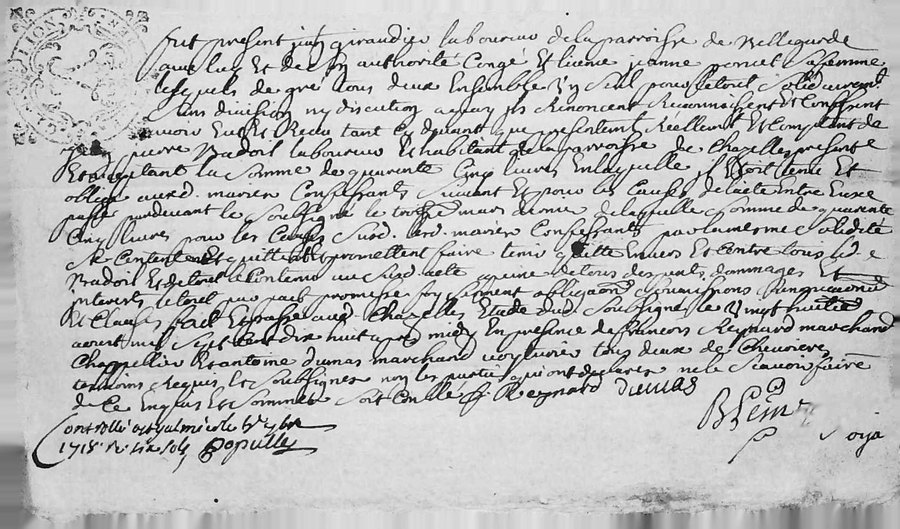 fut present jean giraudier laboureur de la parroisse de Bellegarde
avec luy Et de son authorité Congé Et licence jeanne poncet sa femme
lesquels de gré tous deux Ensemble Un seul pour le tout solidairemt
sans division ny discution a quoy ils Renoncent Reconnaissent Et Confessent
avoir Eu Et Receu tant Cy devant que presentemt Réellement Et Comptant de
pierre Badoil laboureur Et habitant de la parroisse de Chazelles present
Et acceptant la somme de quarante Cinq livres En laquelle il Estoit tenu Et
obligé ausd. mariés Confessants suivant Et pour les Causes de l'acte Entre Eux
passé pardevant le soussigné le mars dernier de laquelle somme de quarante
Cinq livres pour les Causes susd. lesd. mariés Confessants par la mesme solidité
se Contentent Et quittent Et promettent faire tenir quitte Envers Et Contre tous led.
Badoil Et de tout le Contenu au susd acte a peine de tous despants dommages Et
interests le tout par pact promesse foy serment obligaon soumissions Renonciaons
Et Clauses fait Et passé aud Chazelles Estude dud soussigné le Vingt huitie
aoust mil sept cent dix huit apres midy En presence de francois Reynard marchand
Chappellier Et antoine dumas marchand tous deux de Chevrieres
temoins Requis Et soussignés non les parties qui ont declaré ne le scavoir faire
de Ce Enquis Et sommés Reynard dumas
Controllé a st galmier le 7bre
1718 Re six sols